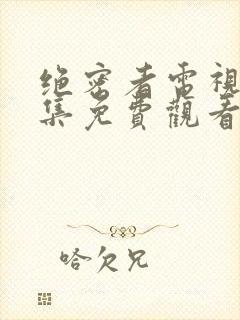 绝密者電視
集免費觀看
哈欠兄